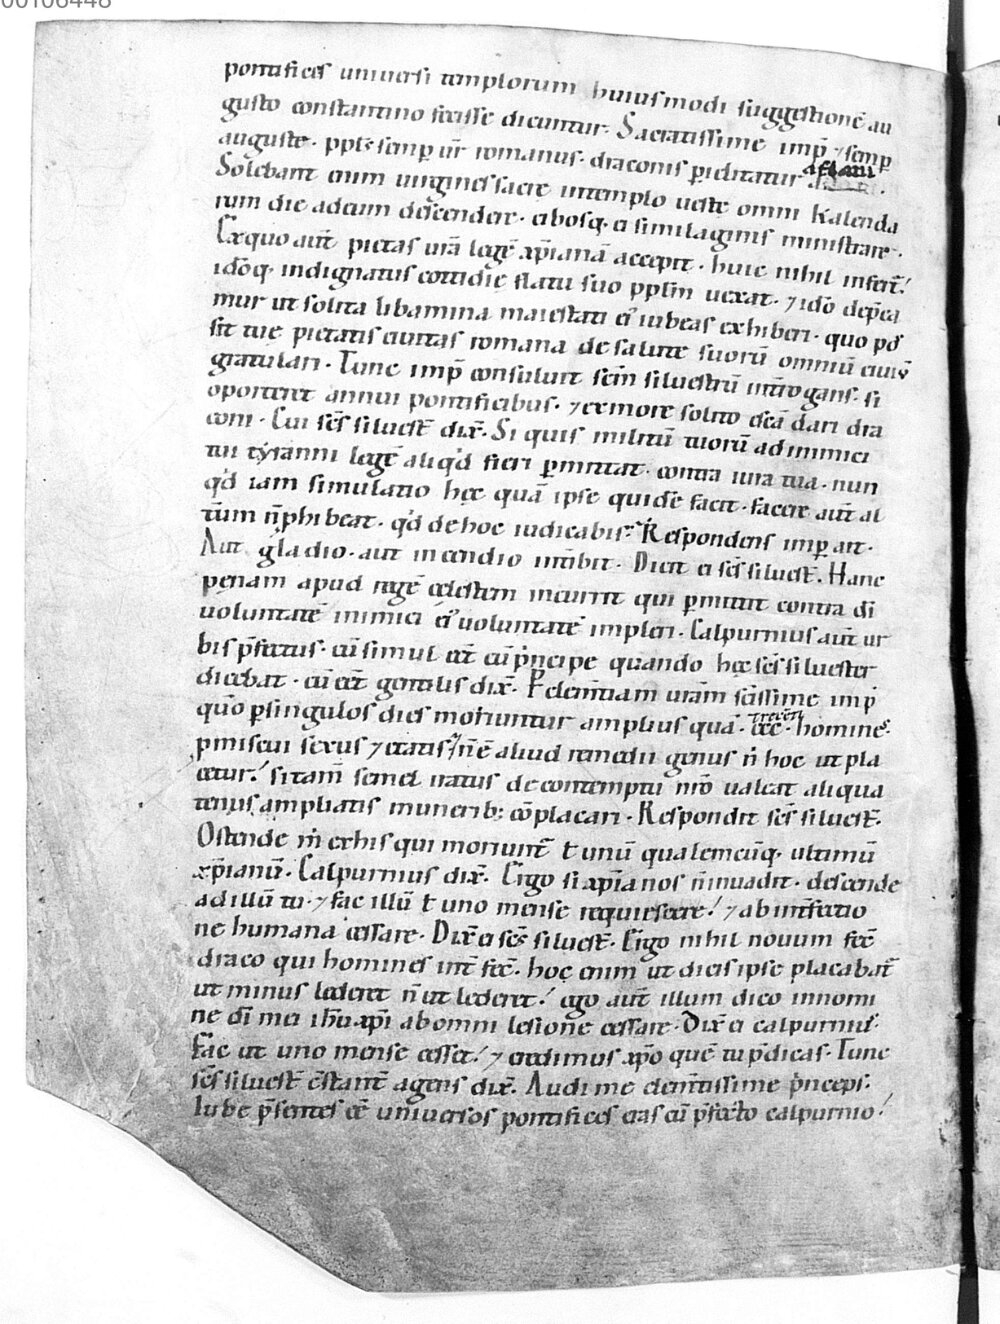 00106448
pontifices universi templorum huiusmodi suggestionē au
gusto constantino fecisse dicuntur. Sacratissime imp̄ ⁊ semp̄
auguste. ppls semp ur̄ romanus. draconis p̱iclitatur aflatu.
Solebant enim uirgines sacrę intemplo uestę omni kalenda
rum die adeum descendere. cibosq; ei similaginis ministrare.
Exquo aut̄ pietas ur̄a legē xp̄ianā accepit. huic nihil infert̄.
idōq; indignatus cottidie flatu suo ppl̄m uexat. ⁊ idō dep̄ca
mur ut solita libamina maiestati ei᷒ iubeas exhiberi. quo pos̄
sit tuę pietatis ciuitas romana de salute suorū omniū ciuiū
gratulari. Tunc imp̄ consuluit sc̄m siluestrū int̄rogans. si
oporteret annui pontificibus. ⁊ exmore solito escā dari dra
coni. Cui sc̄s siluest̄ dix̄. Si quis militū tuorū ad inimici
tui tyranni legē aliq̇d fieri p̱mittat. contra iura tua. nun
q̇d iam simulatio hęc quā ipse quidē facit. facere aut̄ al
t̄um n̄ phibeat. q̇d de hoc iudicabis? Respondens imp̱ ait.
Aut gladio. aut incendio int̄ibit. Dicit ei sc̄s siluest̄. Hanc
penam apud regē cęlestem incurrit qui p̱mittit contra dī
uoluntatē inimici ei᷒ uoluntatē impleri. Calpurnius aut̄ ur
bis p̄fectus. cū simul eēt cū p̓ncipe quando hęc sc̄s siluester
dicebat. cū eēt gentilis dix̄. Per clem̄tiam ur̄am sc̄issime imp̄
quō p̱singulos dies moriuntur amplius quā. ccc. treceti homines.
pmiscui sexus ⁊ ętatis/ n̄ē aliud remedii genus n̄ hoc ut pla
cetur! si tam̄ semel iratus de contemptu n̄ro ualeat aliqua
tenus ampliatis munerib; cōplacari. Respondit sc̄s siluest̄.
Ostende m̄ exhis qui moriunt̄ ł unū qualemcūq; ultimū
xp̄ianū. Calpurnius dix̄. Ergo si xp̄ianos n̄ inuadit. descende
ad illū tu. ⁊ fac illū ł uno mense requiescere! ⁊ ab int̄fectio
ne humana cessare. Dix̄ ei sc̄s siluest̄. Ergo nihil nouum fec̄
draco qui homines int̄fec̄. hoc enim ut dicis ipse placabat̄
ut minus lęderet n̄ ut lederet! ego aut̄ illum dico innomi
ne dī mei ih̄u xp̄i ab omni lesione cessare. Dix̄ ei calpurnius.
Fac ut uno mense cesset! ⁊ credimus xp̄o quē tu p̄dicas. Tunc
sc̄s siluest̄ c̄stant̄ agens dix̄. Audi me clem̄tissime p̓nceps.
Iube p̄sentes eē uniuersos pontifices eius cū p̄fecto calpurnio!